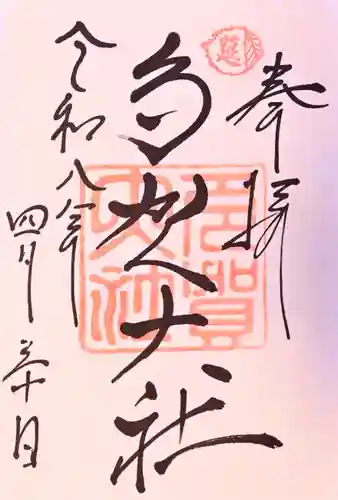 奉拝
多賀大社
多賀大社
令和八年
四月三十日